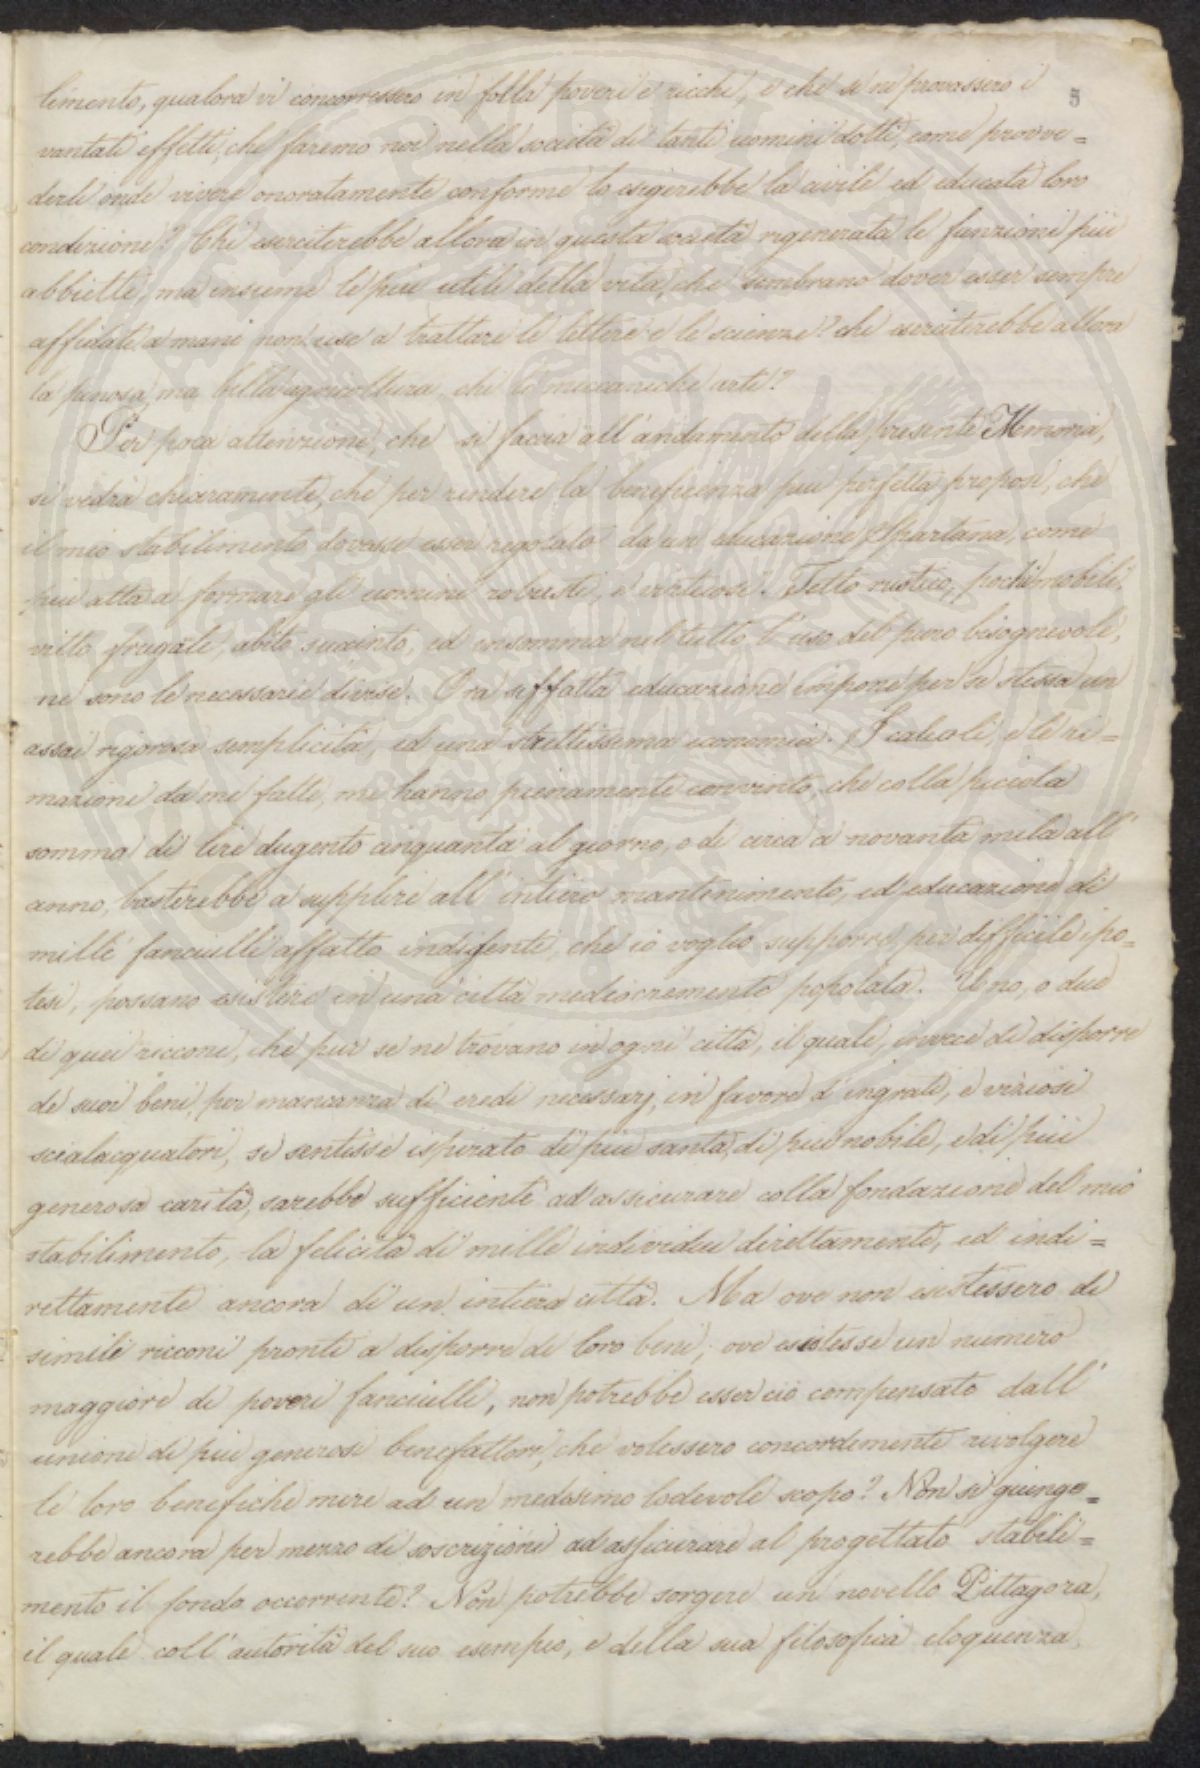 5
limento, qualora vi concorressero in folla poveri e ricchi, e che se ne provassero i
vantati effetti, che faremo noi nella società di tanti uomini dotti, come provve=
derli onde vivere onoratamente conforme lo esigerebbe la civile ed educata loro
condizione? Chi eserciterebbe allora in questa società rigenerata le funzioni più
abbiette, ma insieme le più utili della vita, che sembrano dover esser sempre
affidate a mani non use a trattare le lettere e le scienze? chi eserciterebbe allora
la penosa, ma bella agricoltura, chi le meccaniche arti?
Per poca attenzione, che si faccia all'andamento della presente Memoria,
si vedrà chiaramente, che per rendere la beneficienza piu perfetta proposi, che
il mio stabilimento dovesse esser regolato da un educazione Spartana, come
piu atta a formare gli uomini robusti, e virtuosi. Tetto rustico, pochi mobili,
vitto frugale, abito succinto, ed insomma nel tutto l'uso del puro bisognevole,
ne sono le necessarie divise. Ora siffatta educazione impone per se stessa un
assai rigorosa semplicità, ed una strettissima economia. I calcoli, e le ri=
mazioni da me fatte, mi hanno pienamente convinto, che colla piccola
somma di lire dugento cinquanta al giorno, o di circa a novanta mila all'
anno, basterebbe a supplire all'intiero mantenimento, ed educazione di
mille fanciulli affatto indigenti, che io voglio supporre per difficile ipo=
tesi, possano esistere in una città mediocremente popolata. Uno, o due
di quei ricconi, che pur se ne trovano in ogni città, il quale, invece di disporre
de suoi beni, per mancanza di eredi necessarj, in favore d'ingrati, e viziosi
scialacquatori, se sentisse ispirato di piu santa, di piu nobile, e di piu
generosa carità, sarebbe sufficiente ad assicurare colla fondazione del mio
stabilimento, la felicità di mille individui direttamente, ed indi=
rettamente ancora di un intiera città. Ma ove non esistessero di
simili ricconi pronti a disporre de loro beni, ove esistesse un numero
maggiore di poveri fanciulli, non potrebbe esser ciò compensato dall'
unione di piu generosi benefattori, che volessero concordemente rivolgere
le loro benefiche mire ad un medesimo lodevole scopo? Non si giunge=
rebbe ancora per mezzo di soscrizioni ad assicurare al progettato stabili=
mento il fondo occorrente? Non potrebbe sorgere un novello Pittagora,
il quale coll'autorità del suo esempio, e della sua filosofica eloquenza